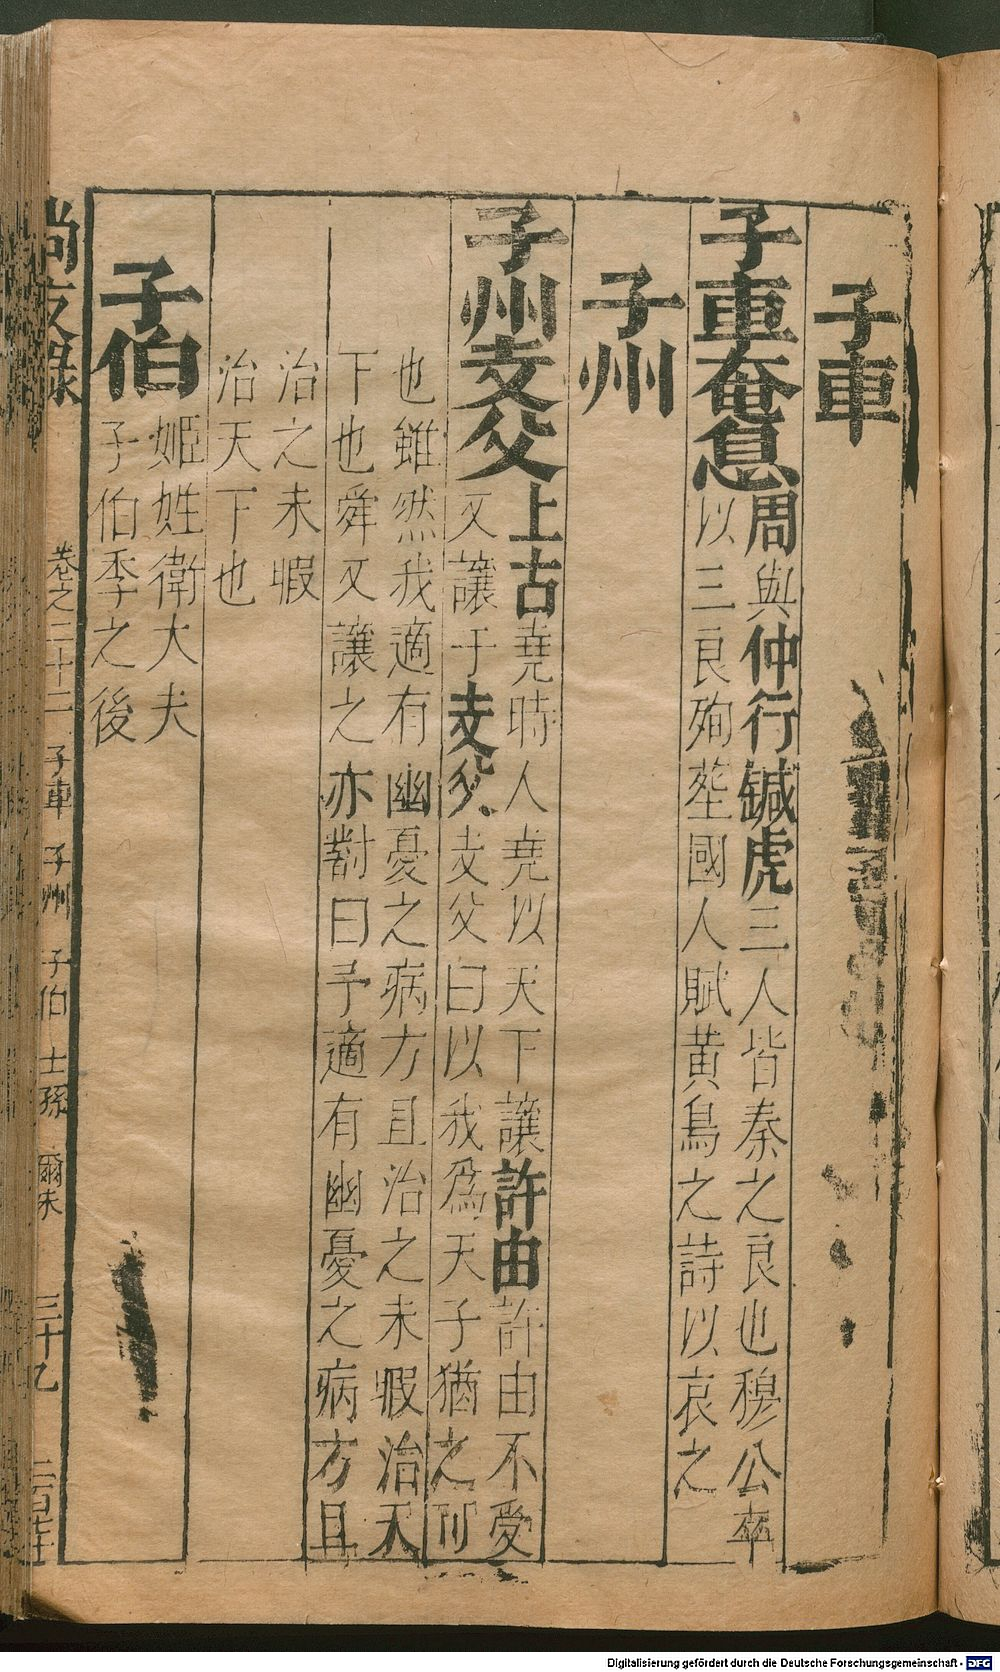 子車
子車奄息
周與仲行鍼虎三人皆秦之良也穆公卒
以三良殉塟國人賦黃鳥之詩以哀之
子州
子州支父
上古堯時人堯以天下讓許由許由不受
又讓于支父支父曰以我爲天子猶之可
也雖然我適有幽憂之病方且治之未暇治天
下也舜又讓之亦對曰予適有幽憂之病方且
治之未暇
治天下也
子伯
姬姓衛大夫
子伯季之後
尚友錄 卷之二十二 子車 子州 子伯 士孫 爾朱 三十乙
Digitalisierung gefördert durch die Deutsche Forschungsgemeinschaft - DFG